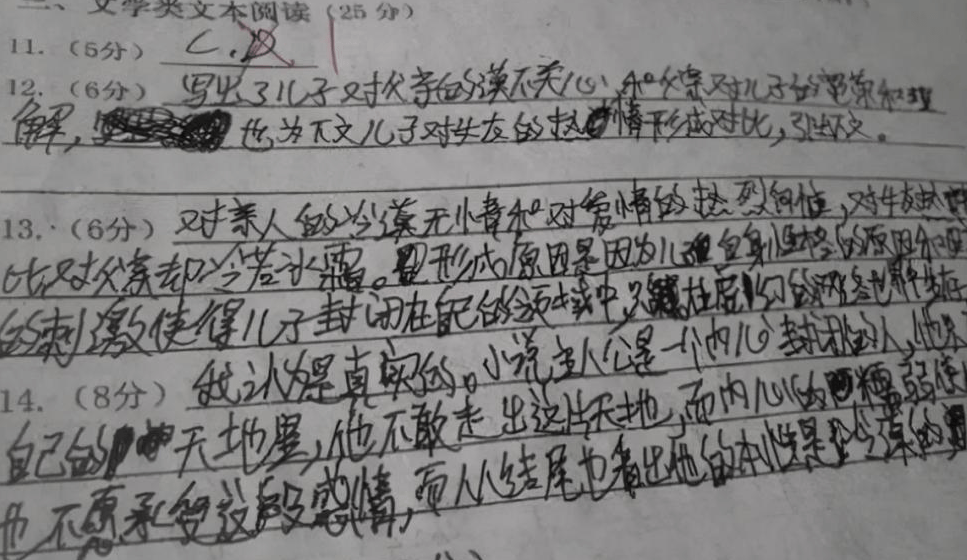 二、文学类文本阅读（25分）
11.（5分） C.D
12.（6分） 写出了儿子对父亲的漠不关心，和父亲对儿子的
解， 也为下文儿子对失友的热情形成对比，引出下文。
13.（6分） 对亲人的冷漠无情和对爱情的热烈，对失友热
比对父亲却冷若冰霜。形成原因是因为儿自身性格的原因和
的刺激使得儿子封闭在自己的领域中，只在虚幻的网络世界
14.（8分） 我认为是真实的。小说主人公是一个内心封闭的人，他
自己的天地里，他不敢走出这片天地，而内心的懦弱使
他不愿承受这段感情，而从结尾也看出他的本性是冷漠的